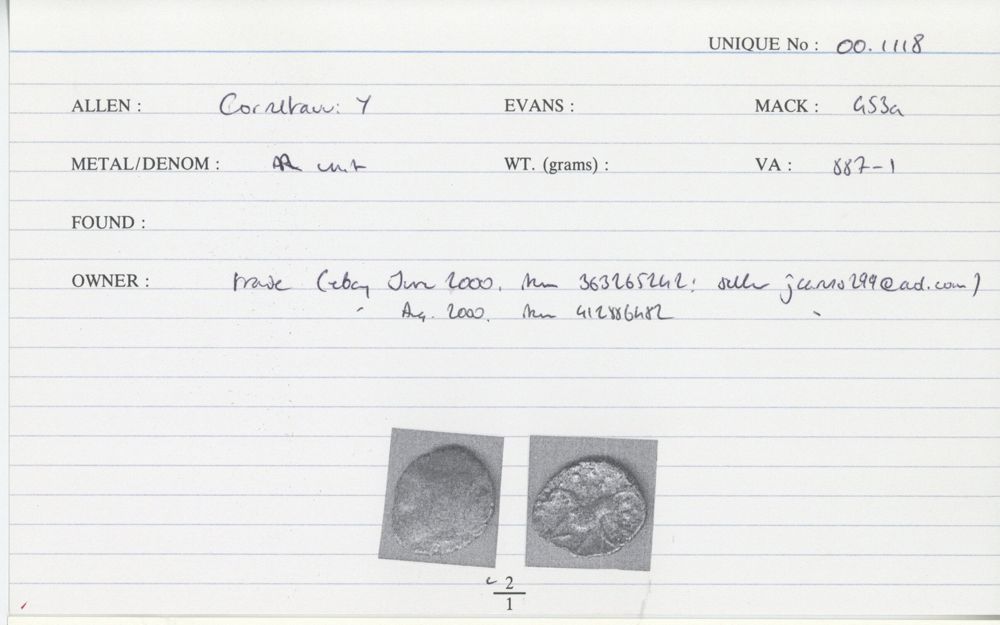 UNIQUE No : 00.1118
ALLEN : Corieltauvi Y EVANS : MACK : 453a
METAL/DENOM : AR unit WT. (grams) : VA : 887-1
FOUND :
OWNER : trade (ebay June 2000, item 363265242; seller @aol.com)
Aug. 2000, item 412886482
c 2
1